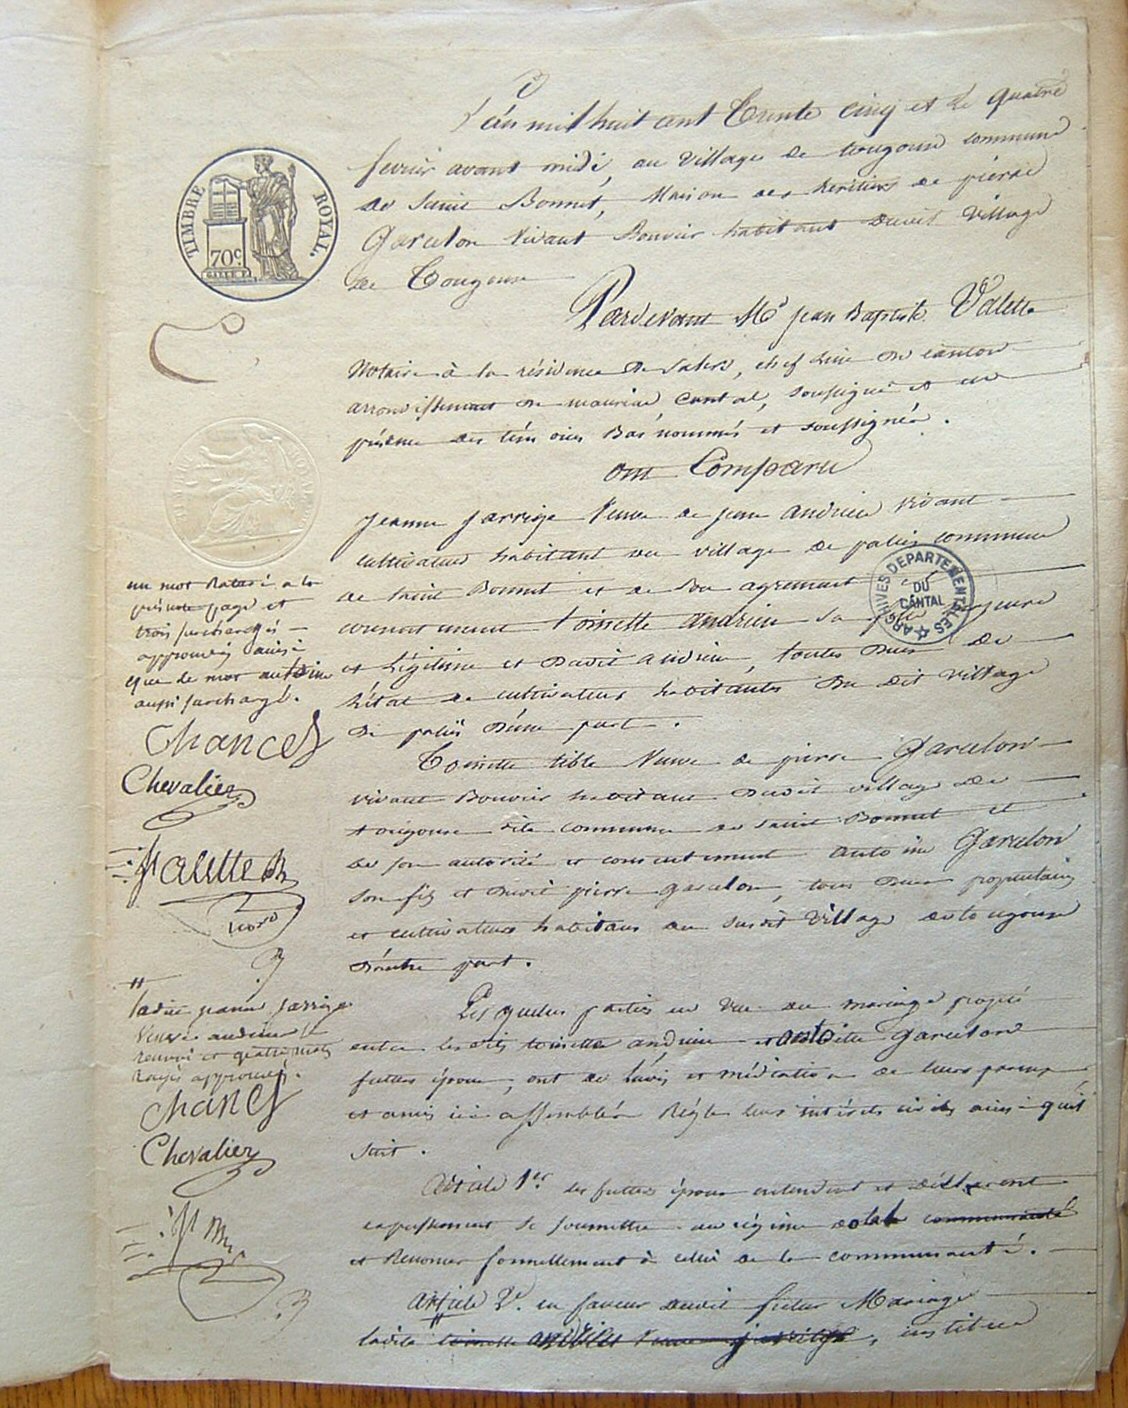 L'an mil huit cent trente cinq et le quatre
fevrier avant midi, au village de tougouse commune
de Saint Bonnet, Maison des heritiers de pierre
Garcelon vivant Bouvier habitant dudit village
de Tougouse
Pardevant Me jean Baptiste Valette
Notaire à la résidence de Salers, chef lieu de canton
arrondissement de mauriac, Cantal, soussigné et en
présence des témoins Bas nommés et soussignés.
ont Comparu
jeanne jarrige Veuve de jean andrieu vivant
cultivateur habitant au village de paliès commune
de Saint Bonnet et de son agrement et
consentement toinette andrieu sa fille majeure
et Légitime et dudit andrieu, toutes deux de
l'état de cultivateurs habitantes du dit village
de paliès d'une part.
Toinette tible Veuve de pierre Garcelon
vivant Bouvier habitant dudit village de
tougouse dite commune de Saint Bonnet et
de son autorité et consentement antoine Garcelon
son fils et dudit pierre garcelon, tous deux propriétaires
et cultivateurs habitans du susdit village de tougouse
d'autre part.
Lesquelles parties en vue du mariage projeté
entre lesdits toinette andrieu et antoine garcelon
futurs époux, ont de l'avis et médiation de leurs parens
et amis ici assemblés Réglé leurs intérêts civils ainsi qu'il
suit.
Article 1er les futurs époux entendent et déclarent
expressement se soumettre au régime dotal communauté
et Renoncer formellement à celui de la communauté.
Article 2. en faveur dudit futur Mariage
ladite toinette andrieu Veuve jarrige, institue
TIMBRE ROYAL.
70c
ARCHIVES DEPARTEMENTALES
DU
CANTAL
un mot Raturé à la
présente page et
trois surchargés
approuvés ainsi
que le mot antoine
aussi surchargé.
Chancel
Chevalier
Valette
ladite jeanne jarrige
Veuve andrieu
renvoi et quatre mots
Rayés approuvés.
Chancel
Chevalier